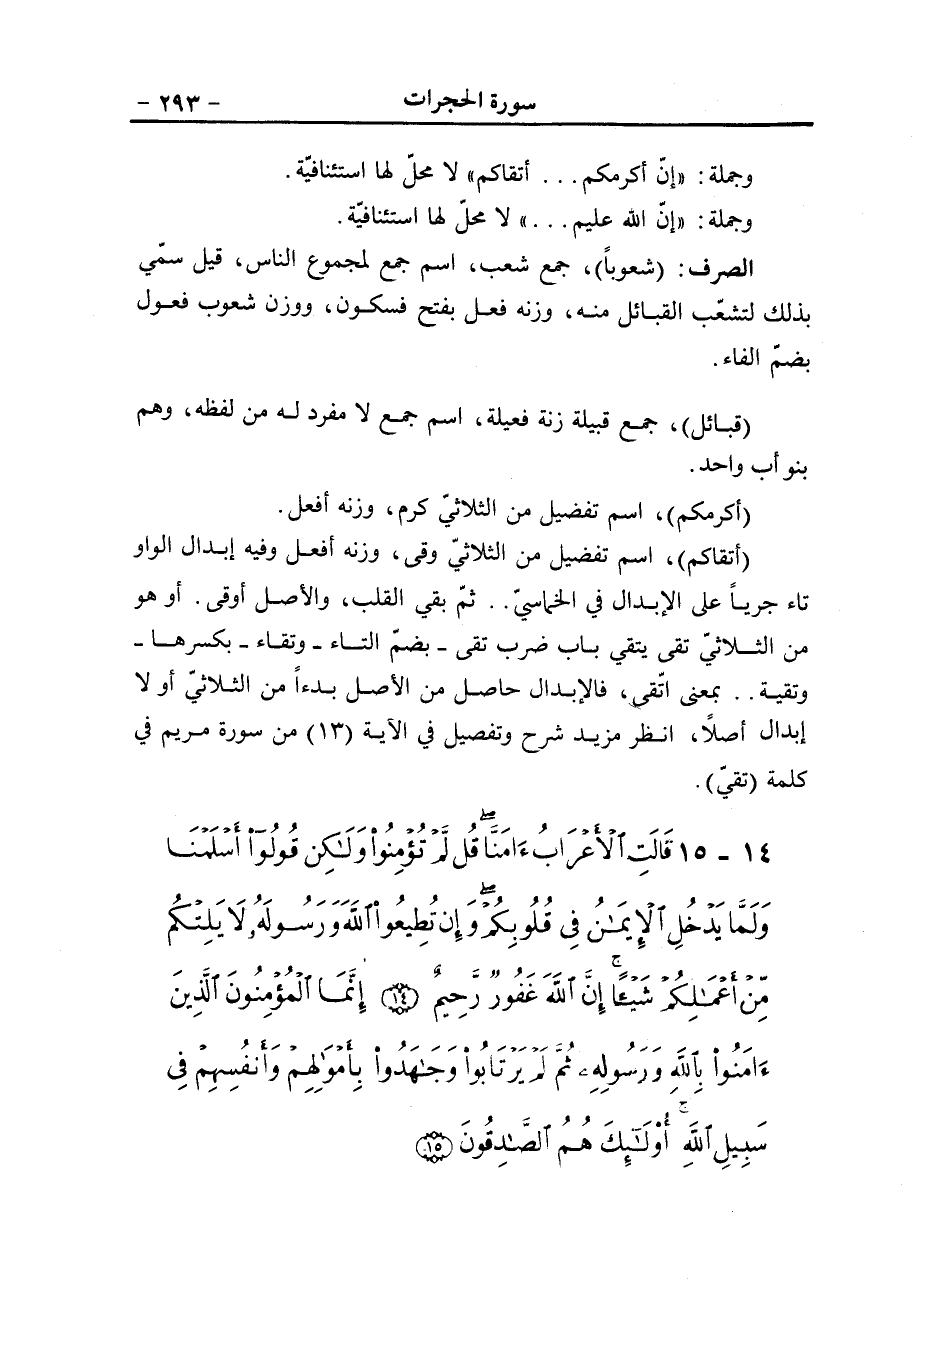 سورة الحجرات - ٢٩٣ -
وجملة: «إنّ أكرمكم... أتقاكم» لا محلّ لها استئنافيّة.
وجملة: «إنّ الله عليم...» لا محلّ لها استئنافيّة.
الصرف: (شعوباً)، جمع شعب، اسم جمع لمجموع الناس، قيل سمّي
بذلك لتشعّب القبائل منه، وزنه فعل بفتح فسكون، ووزن شعوب فعول
بضمّ الفاء.
(قبائل)، جمع قبيلة زنة فعيلة، اسم جمع لا مفرد له من لفظه، وهم
بنو أب واحد.
(أكرمكم)، اسم تفضيل من الثلاثيّ كرم، وزنه أفعل.
(أتقاكم)، اسم تفضيل من الثلاثيّ وقى، وزنه أفعل وفيه إبدال الواو
تاء جرياً على الإبدال في الخماسيّ.. ثمّ بقي القلب، والأصل أوقى. أو هو
من الثلاثيّ تقى يتقي باب ضرب تقى ـ بضمّ التاء ـ وتقاء ـ بكسرها ـ
وتقية.. بمعنى اتّقى، فالإبدال حاصل من الأصل بدءاً من الثلاثيّ أو لا
إبدال أصلاً، انظر مزيد شرح وتفصيل في الآية (١٣) من سورة مريم في
كلمة (تقيّ).
١٤ - ١٥ قَالَتِ ٱلْأَعْرَابُ ءَامَنَّا ۖ قُل لَّمْ تُؤْمِنُوا۟ وَلَـٰكِن قُولُوٓا۟ أَسْلَمْنَا
وَلَمَّا يَدْخُلِ ٱلْإِيمَـٰنُ فِى قُلُوبِكُمْ ۖ وَإِن تُطِيعُوا۟ ٱللَّهَ وَرَسُولَهُۥ لَا يَلِتْكُم
مِّنْ أَعْمَـٰلِكُمْ شَيْـًٔا ۚ إِنَّ ٱللَّهَ غَفُورٌ رَّحِيمٌ (١٤) إِنَّمَا ٱلْمُؤْمِنُونَ ٱلَّذِينَ
ءَامَنُوا۟ بِٱللَّهِ وَرَسُولِهِۦ ثُمَّ لَمْ يَرْتَابُوا۟ وَجَـٰهَدُوا۟ بِأَمْوَٰلِهِمْ وَأَنفُسِهِمْ فِى
سَبِيلِ ٱللَّهِ ۚ أُو۟لَـٰٓئِكَ هُمُ ٱلصَّـٰدِقُونَ (١٥)